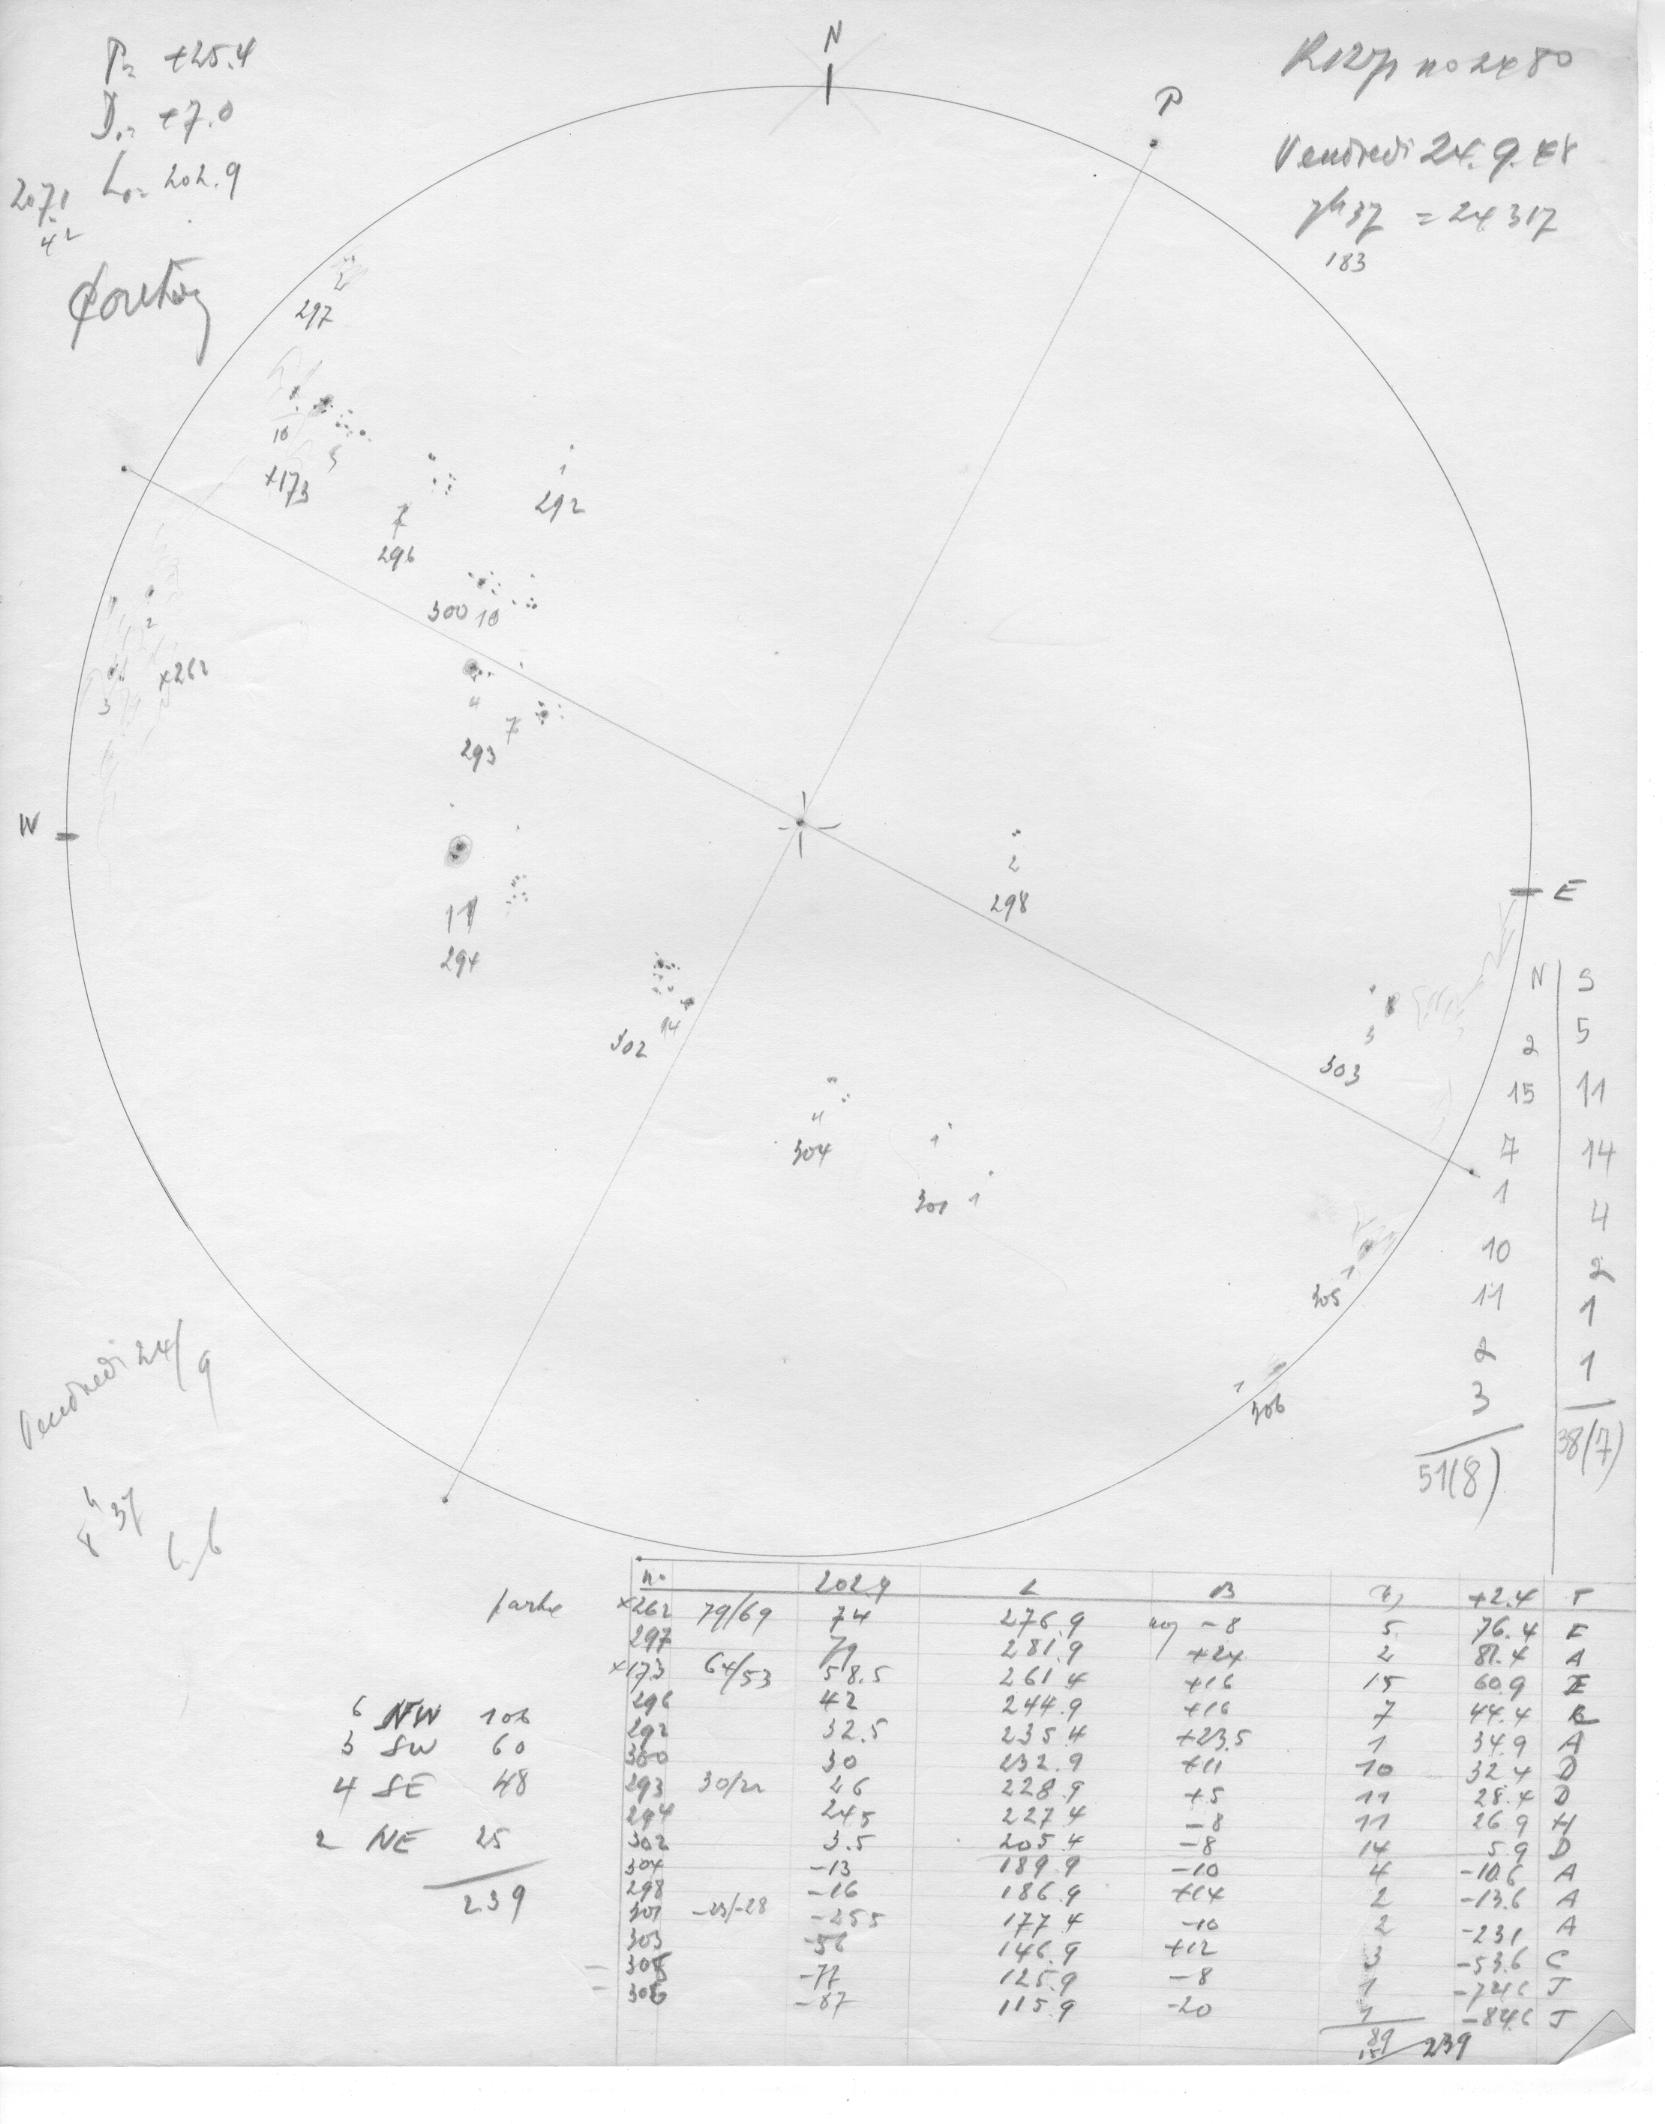 P= +25.4
D₀= +7.0
L₀= 202.9
N
P
no 2480
Vendredi 24.9.48
7h37 = 24317
183
2
297
10
5
×173
1
292
7
296
300 10
2
×262
3
4
7
293
W
11
294
2
298
E
14
302
3
303
4
304
1
301 1
1
305
1
306
N S
2 5
15 11
7 14
1 4
10 2
11 1
2 1
3
51(8) 38(7)
Vendredi 24/9
8h37
n° 202.9 L B +2.4 T
×262 79/69 74 276.9 -8 5 76.4 E
297 79 281.9 +24 2 81.4 A
×173 64/53 58.5 261.4 +16 15 60.9 E
296 42 244.9 +16 7 44.4 B
292 32.5 235.4 +23.5 1 34.9 A
300 30 232.9 +11 10 32.4 D
293 30/22 26 228.9 +5 11 28.4 D
294 24.5 227.4 -8 11 26.9 H
302 3.5 205.4 -8 14 5.9 D
304 -13 189.9 -10 4 -10.6 A
298 -16 186.9 +14 2 -13.6 A
301 -23/-28 -25.5 177.4 -10 2 -23.1 A
303 -56 146.9 +12 3 -53.6 C
305 -77 125.9 -8 1 -74.6 J
306 -87 115.9 -20 1 -84.6 J
89
239
6 NW 106
3 SW 60
4 SE 48
2 NE 25
239